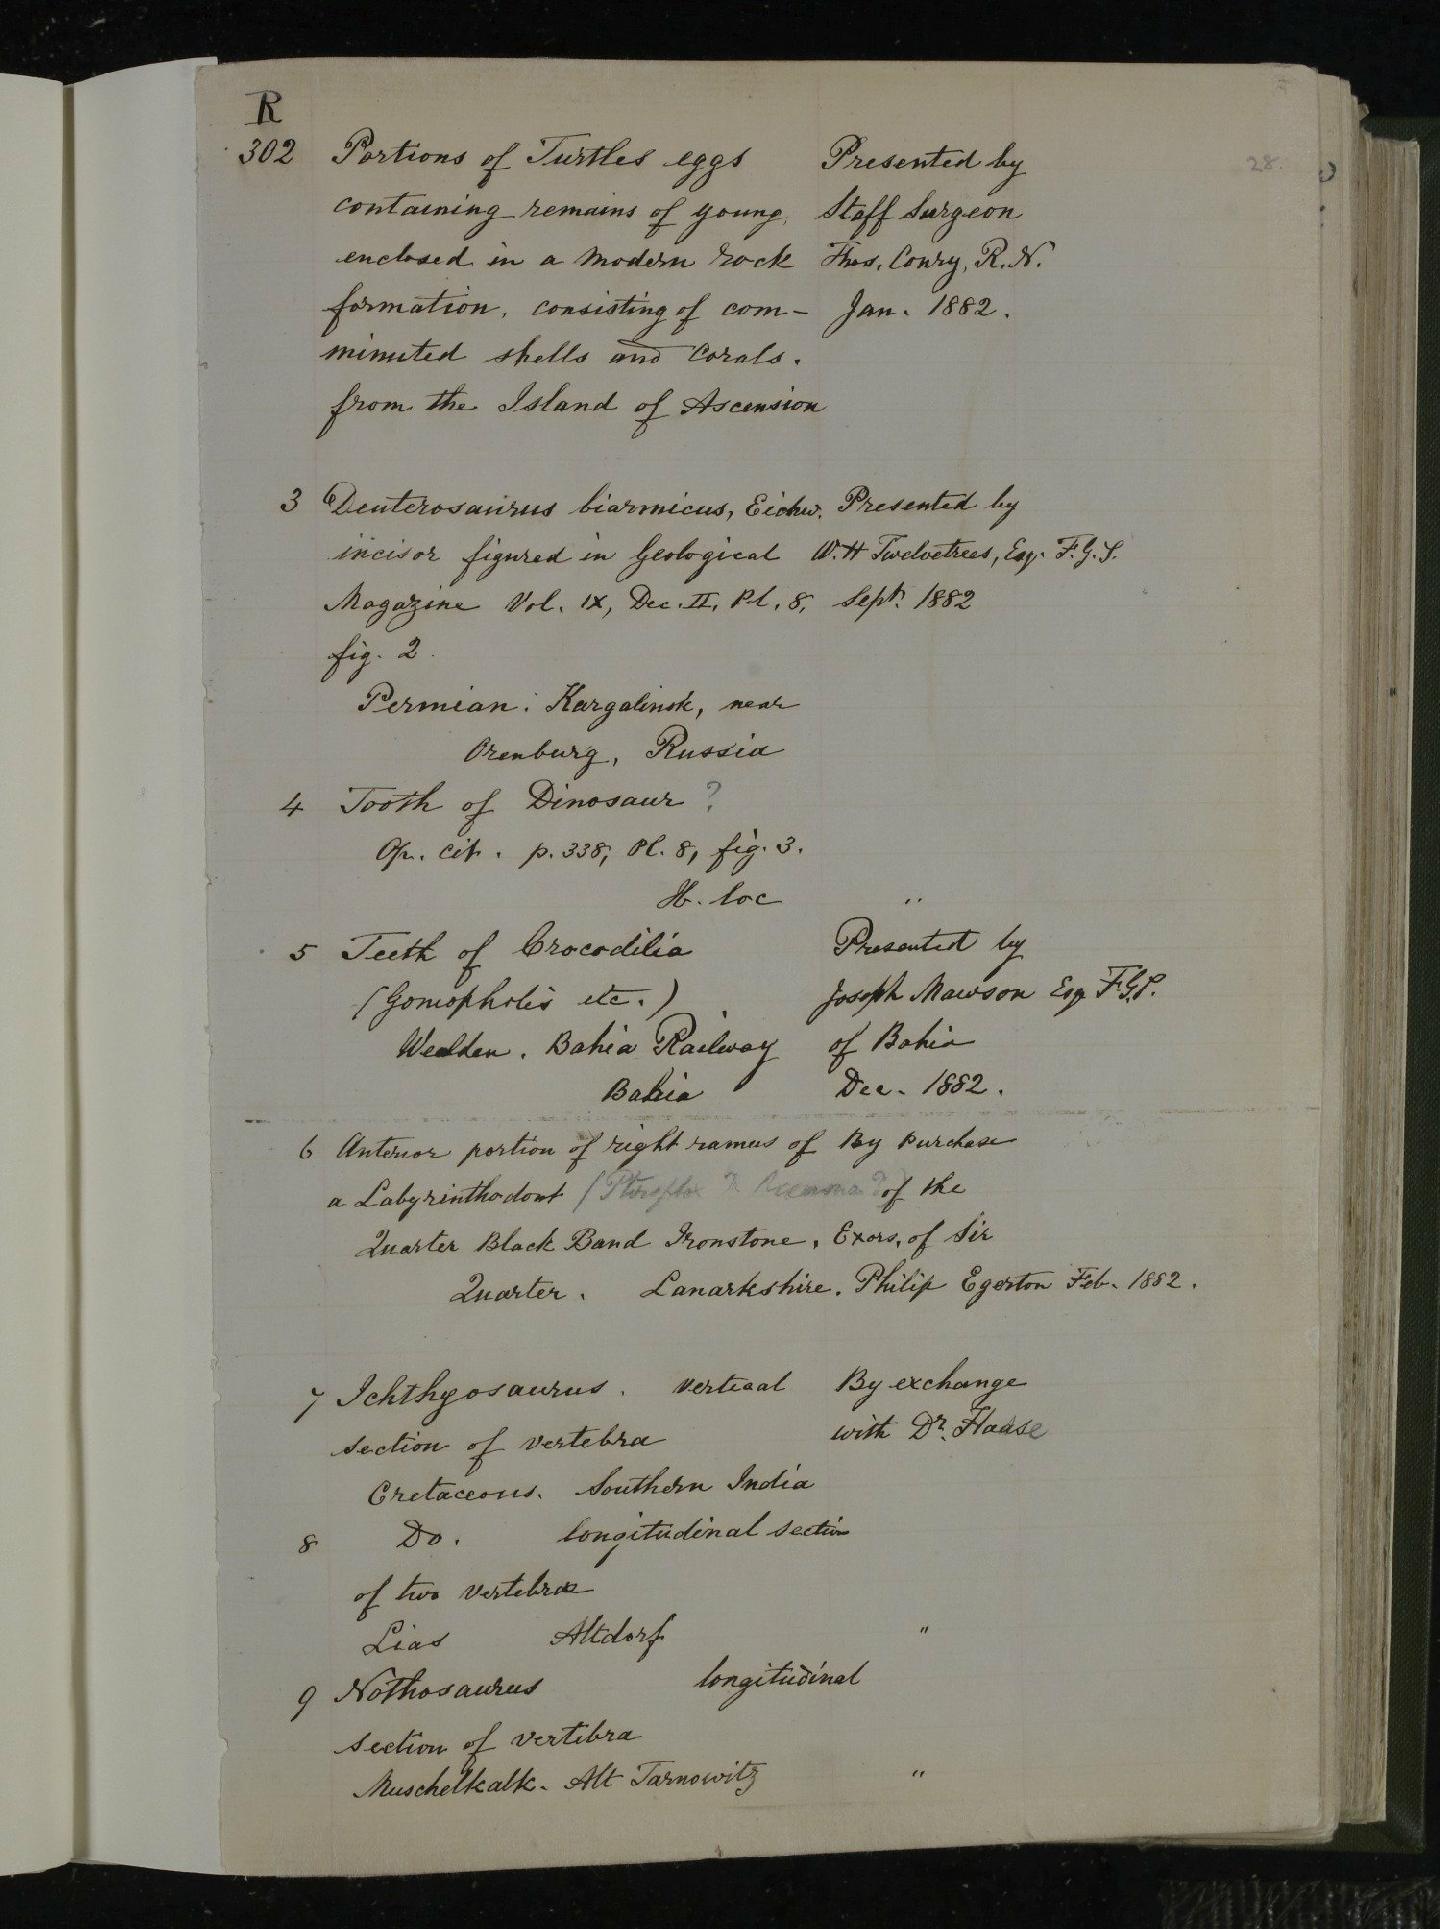 R
28.
302 Portions of Turtles eggs Presented by
containing remains of young, Staff Surgeon
enclosed in a modern rock Thos. Conry, R.N.
formation, consisting of com- Jan. 1882.
minuted shells and Corals.
from the Island of Ascension
3 Deuterosaurus biarmicus, Eichw. Presented by
incisor figured in Geological W.H Twelvetrees, Esq. F.G.S.
Magazine Vol. IX, Dec. II, Pl. 8, Sept. 1882
fig. 2.
Permian. Kargalinsk, near
Orenburg, Russia
4 Tooth of Dinosaur ?
Op. cit. p. 338, Pl. 8, fig. 3.
H. loc "
5 Teeth of Crocodilia Presented by
(Goniopholis etc.) Joseph Mawson Esq F.G.S.
Wealden. Bahia Railway of Bahia
Bahia Dec. 1882.
6 Anterior portion of right ramus of By Purchase
a Labyrinthodont ( of the
Quarter Black Band Ironstone, Exors, of Sir
Quarter. Lanarkshire. Philip Egerton Feb. 1882.
7 Ichthyosaurus. Vertical By exchange
section of vertebra with Dr. Haase
Cretaceous. Southern India
8 Do. longitudinal section
of two vertebrae
Lias Altdorf "
9 Nothosaurus longitudinal
section of vertebra
Muschelkalk. Alt Tarnowitz "